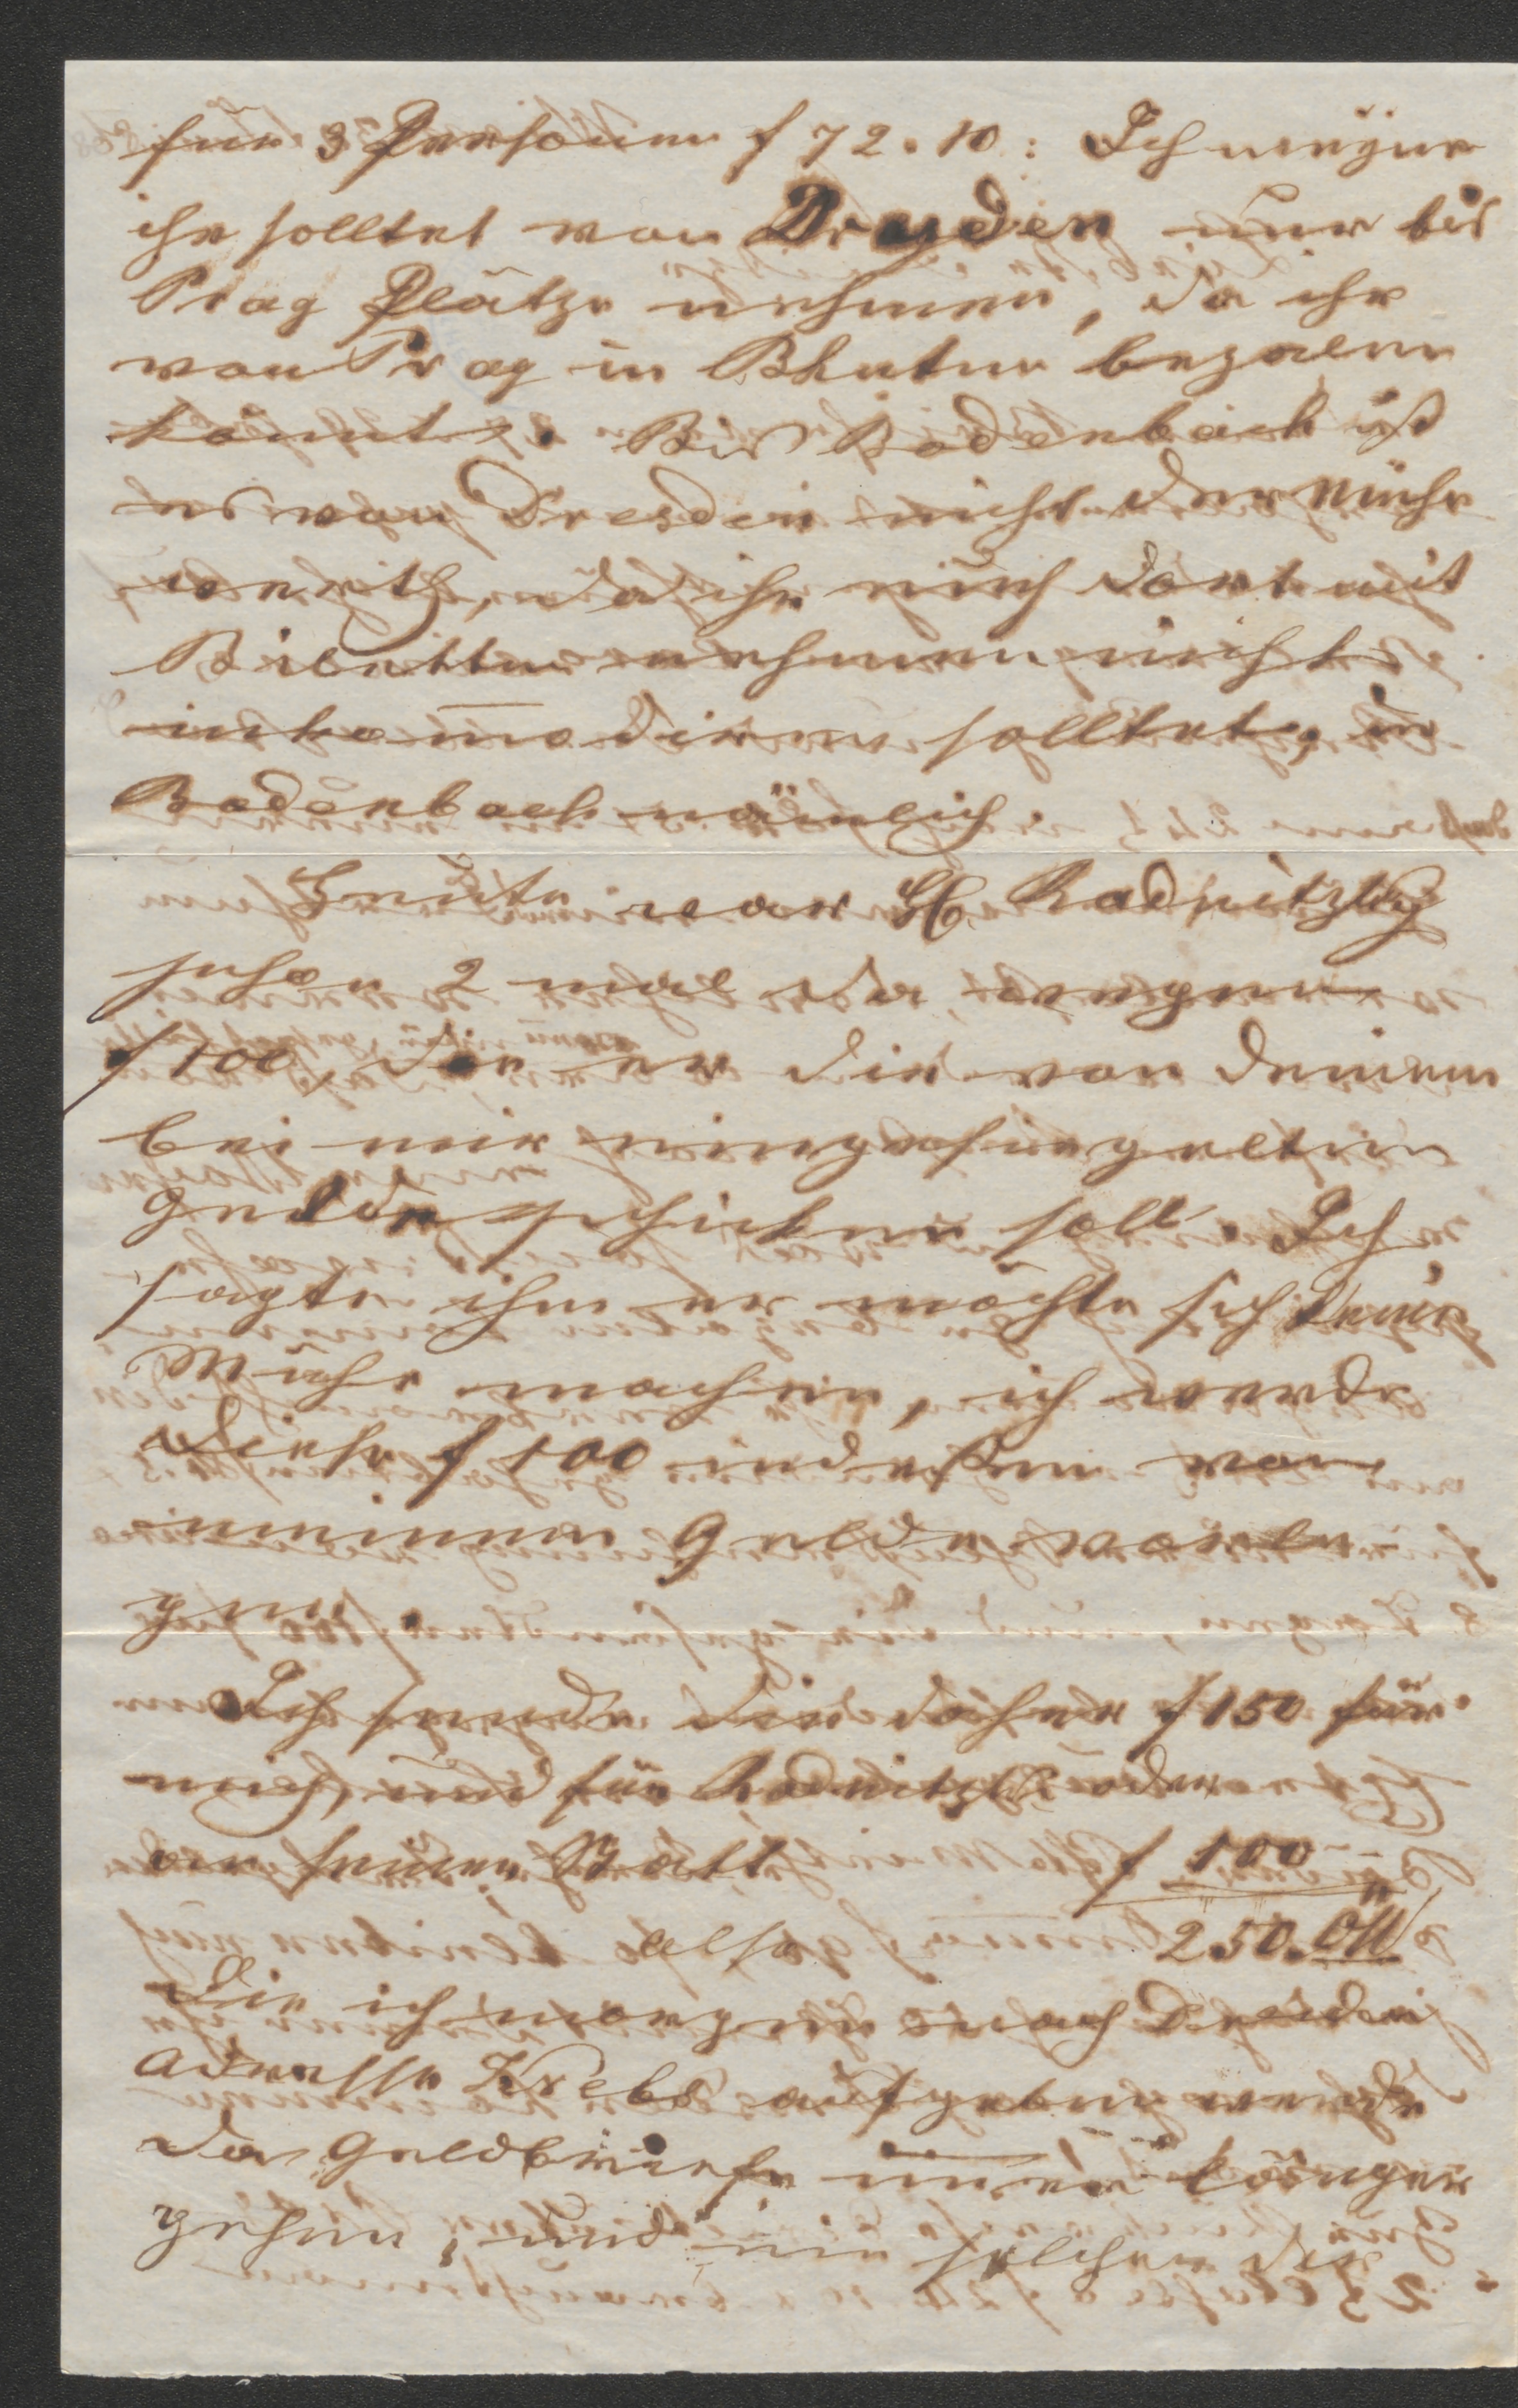 für 3 Personen f 72.10: Ich meyne
ihr solltet von Dresden nur bis
Prag Plätze nehmen, da ihr
von Prag in Bknoten bezalen
könnt. Bis Bodenbach ist
es von Dresden nicht der Mühe
werth, da ihr euch dort mit
Biletten nehmen nicht
inkom̄odiren solltet, in
Bodenbach nämlich
Heute war H. Radnitzky
schon 2 mal da, wegen
f 100, die er dir von deinem
bei mir eingesiegelten
Gelde schicken soll. Ich
sagte ihm er möchte sich keine
Mühe machen, ich werde
diese f 100 indeßen von
meinem Gelde vorle-
gen.
Ich sende dir daher f 150 für
mich, und für Radnitzky oder
an seiner Statt f 100
also 250. ÖW
die ich morgen nach Dresden
Adresse Krebs aufgeben werde
da Geldbriefe im̄er länger
gehen, und ein solcher dir